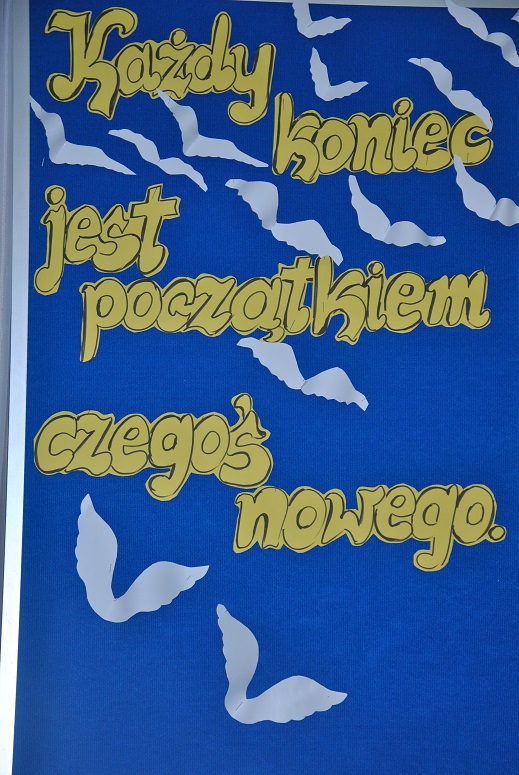 Każdy
koniec
jest
początkiem
czegoś
nowego.